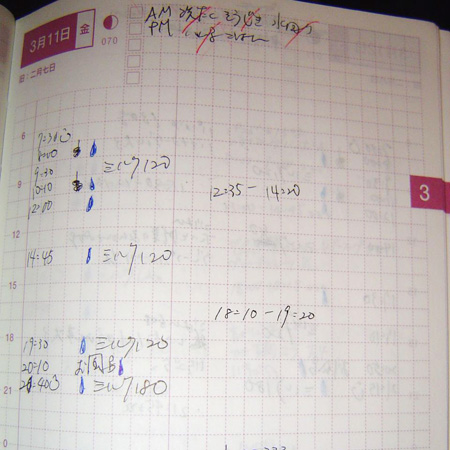 3月11日 金
070
旧:二月七日
AM 洗たく そうじき 水回り
PM 夜ごはん
6
7:30
8:00
9:30 ミルク120
9
10:10
12:00
12:35 - 14:20
12
14:45 ミルク120
15
18:10 - 19:20
18
19:30 ミルク120
20:10 お風呂
21
20:40 ミルク180
0
3